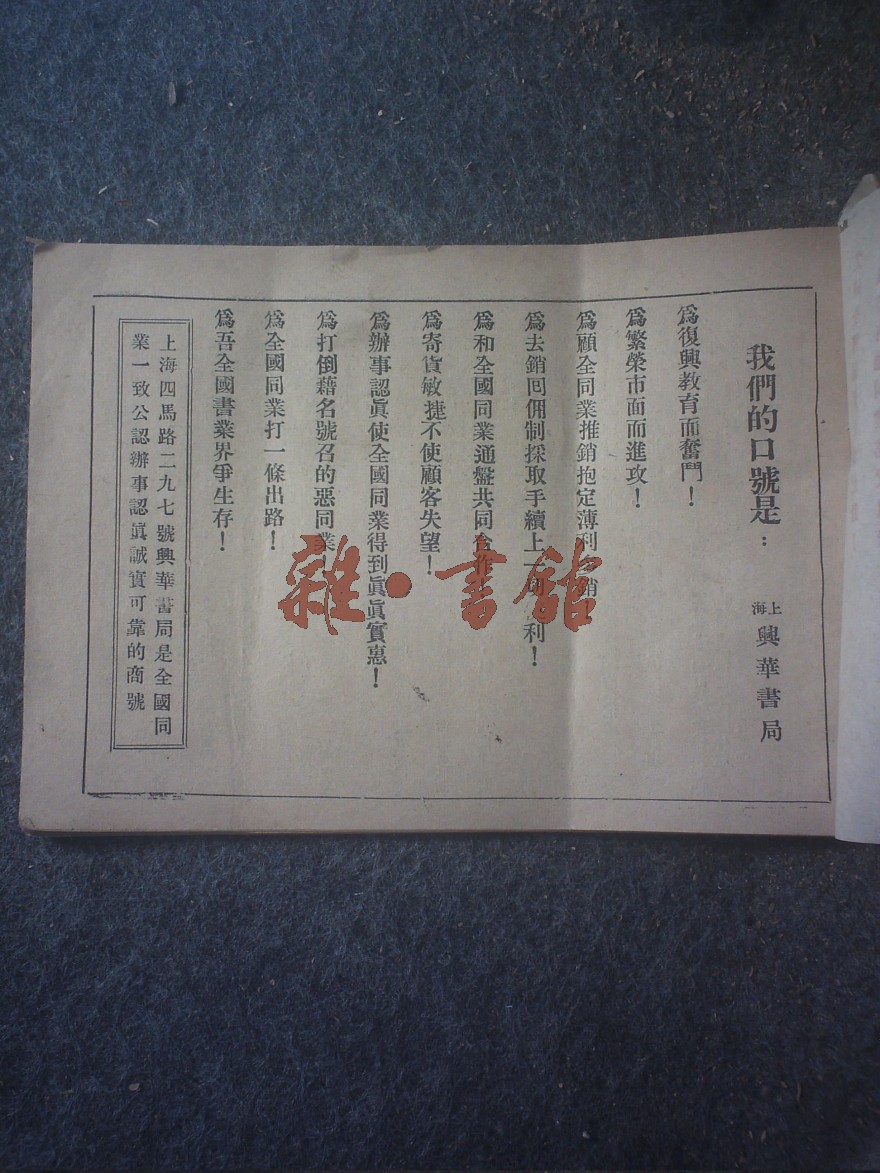 我們的口號是：
上海 興華書局
爲復興教育而奮鬥！
爲繁榮市面而進攻！
爲顧全同業推銷抱定薄利多銷
爲去銷回佣制採取手續上一切 利！
爲和全國同業通盤共同合作
爲寄貨敏捷不使顧客失望！
爲辦事認眞使全國同業得到眞眞實惠！
爲打倒藉名號召的惡同業！
爲全國同業打一條出路！
爲吾全國書業界爭生存！
上海四馬路二九七號興華書局是全國同
業一致公認辦事認眞誠實可靠的商號
雜·書館